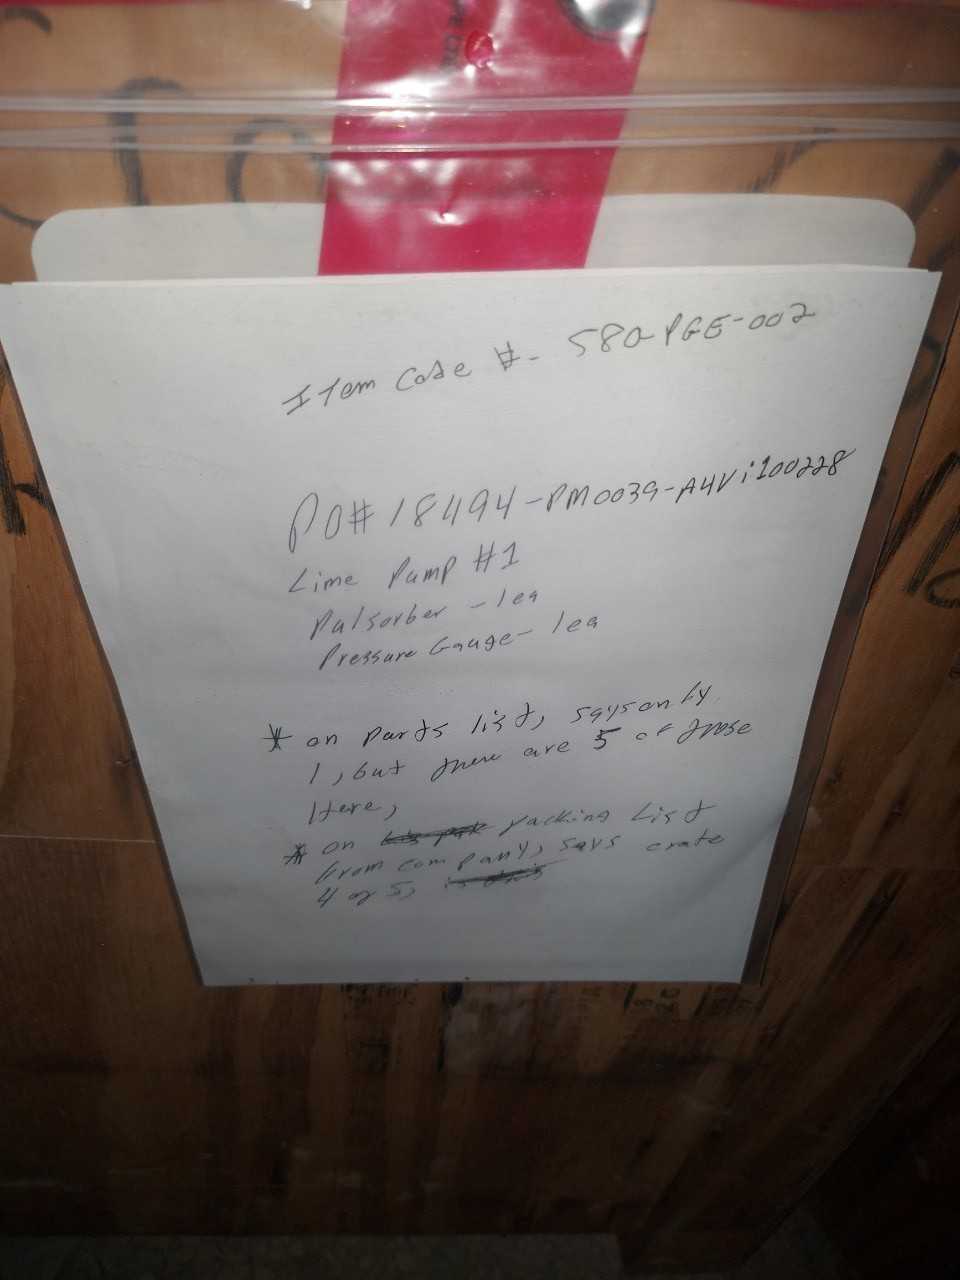 Item Code #- 580-PGE-002
PO# 18494-PM0039-A4Vi100228
Lime Pump #1
Pulsorber - 1ea
Pressure Gauge- 1ea
* on parts list, says only
1, but there are 5 of these
Here,
* on packing List
from company, says crate
4 of 5,